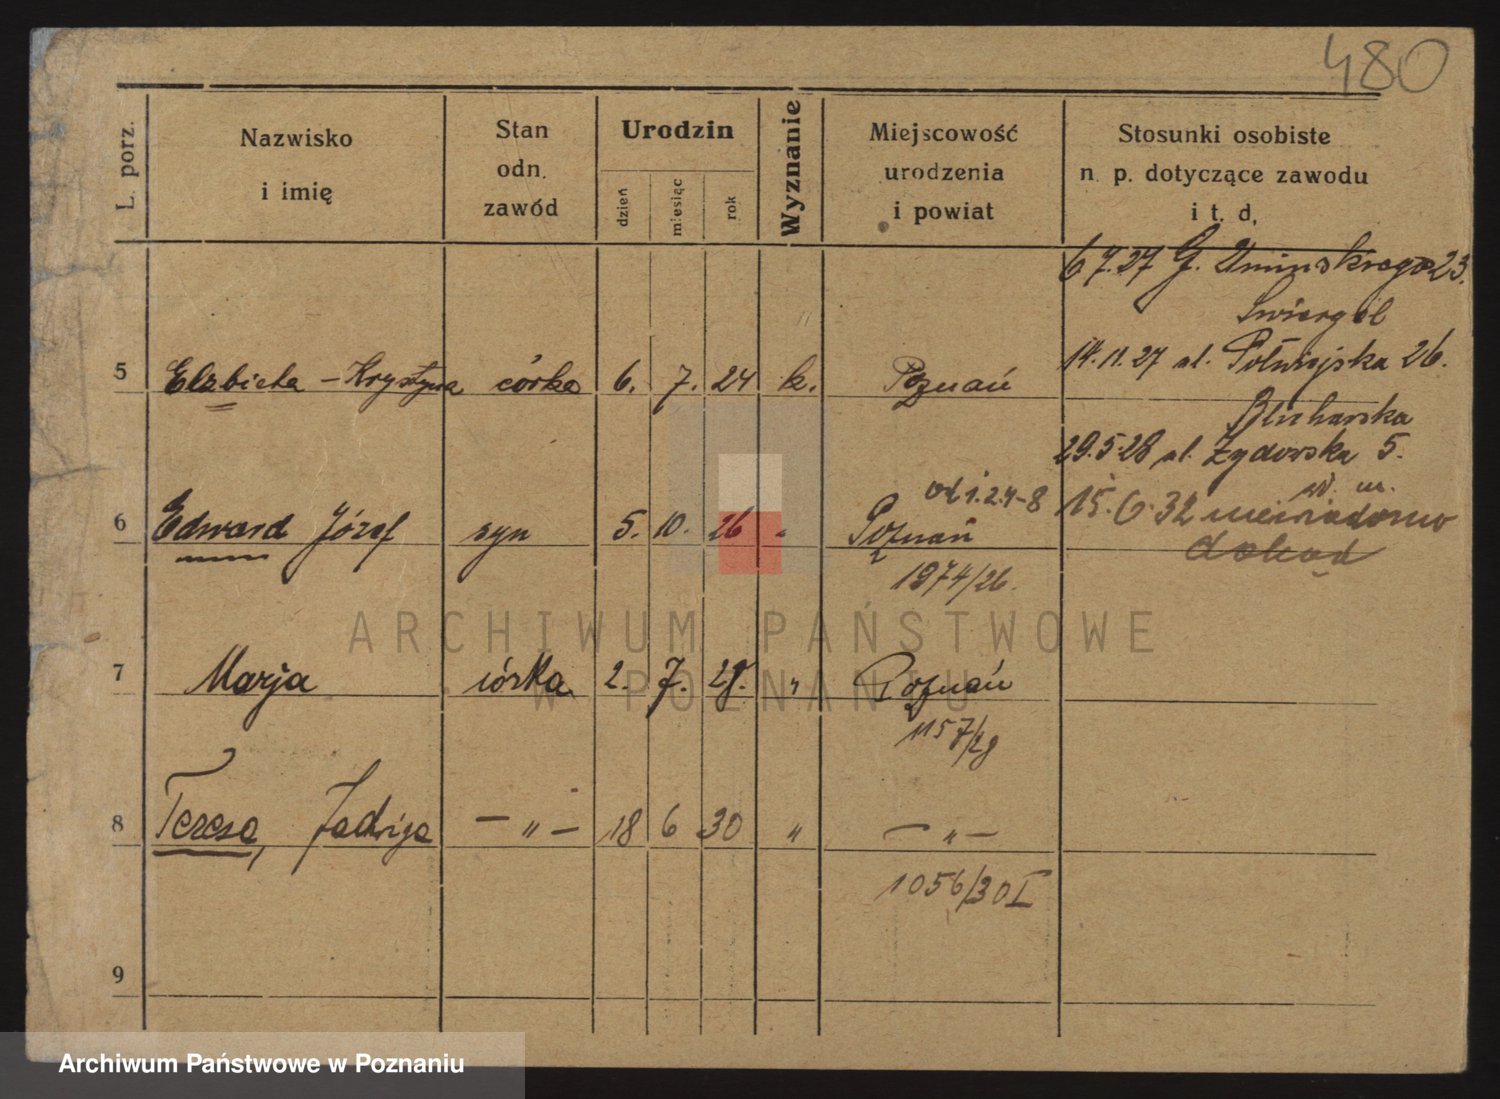 480
L. porz.
Nazwisko
i imię
Stan
odn.
zawód
Urodzin
dzień
miesiąc
rok
Wyznanie
Miejscowość
urodzenia
i powiat
Stosunki osobiste
n. p. dotyczące zawodu
i t. d.
6 7.27 G. Umińskiego 23.
14.11.27 ul. Półwiejska 26.
5 Elżbieta - Krystyna córka 6. 7. 24 k. Poznań
29.5.28 ul. Żydowska 5.
6 Edward Józef syn 5. 10. 26 " Poznań
15.6.32 niewiadomo
dokąd
1974/26.
7 Marja córka 2. 7. 28. " Poznań
1157/28
8 Teresa, Jadwiga — " — 18 6 30 " — " —
1056/30 I
9
ARCHIWUM PAŃSTWOWE
W POZNANIU
Archiwum Państwowe w Poznaniu